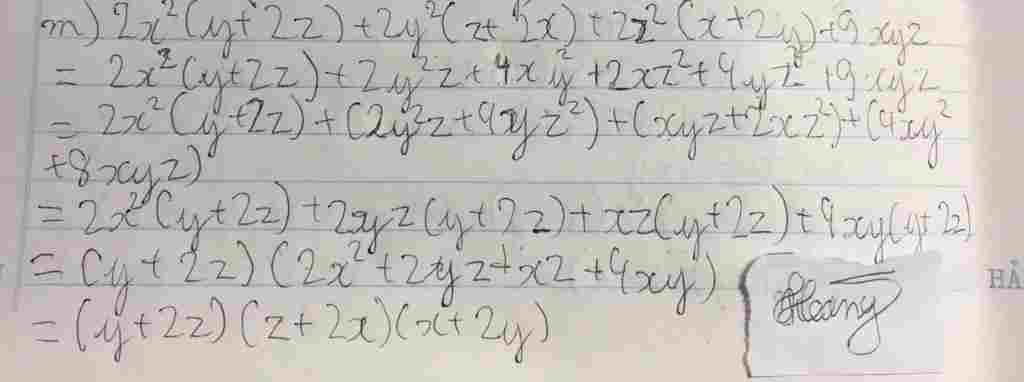 m) 2x²(y+2z)+2y²(z+2x)+2z²(x+2y)+9xyz
= 2x²(y+2z)+2y²z+4xy²+2xz²+4yz²+9xyz
= 2x²(y+2z)+(2y²z+4yz²)+(xyz+2xz²)+(4xy²
+8xyz)
= 2x²(y+2z)+2yz(y+2z)+xz(y+2z)+4xy(y+2z)
= (y+2z)(2x²+2yz+xz+4xy)
= (y+2z)(z+2x)(x+2y)
HẢ